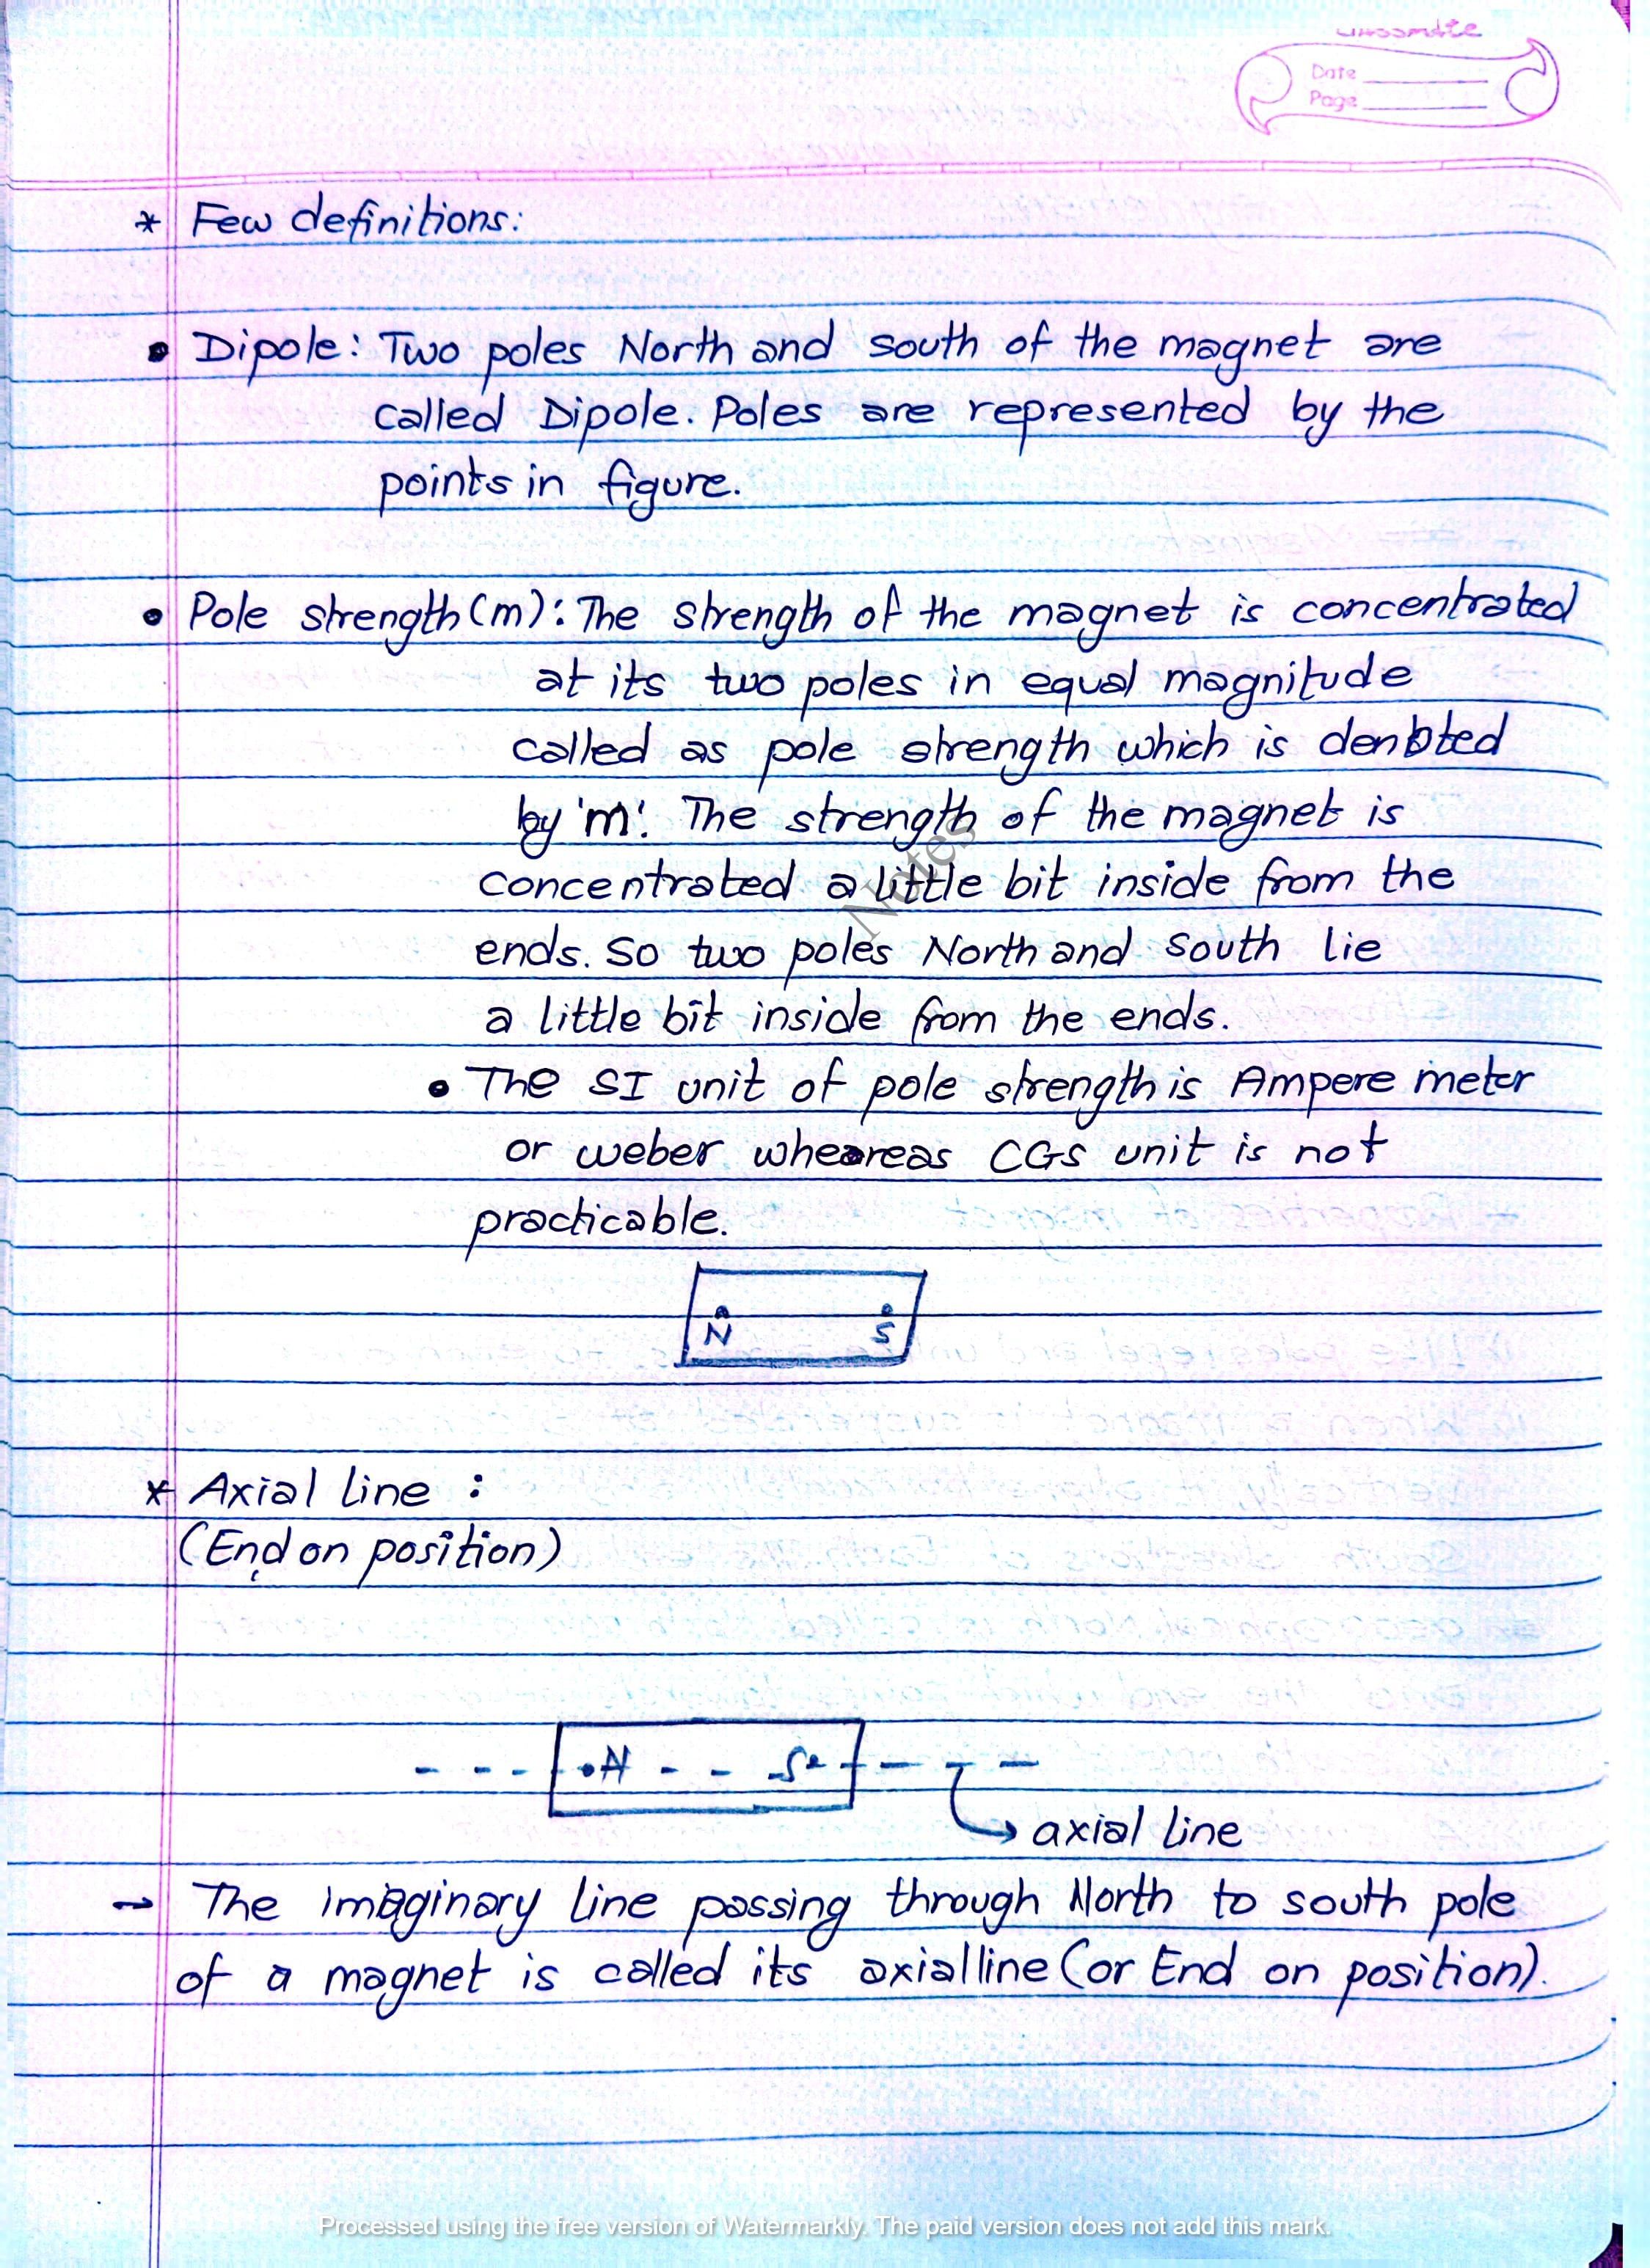 classmate
Date
Page
* Few definitions:
• Dipole: Two poles North and south of the magnet are
called Dipole. Poles are represented by the
points in figure.
• Pole strength (m): The strength of the magnet is concentrated
at its two poles in equal magnitude
called as pole strength which is denoted
by 'm'. The strength of the magnet is
concentrated a little bit inside from the
ends. So two poles North and South lie
a little bit inside from the ends.
• The SI unit of pole strength is Ampere meter
or weber wheareas CGS unit is not
practicable.
N S
* Axial line :
(End on position)
N S
axial line
→ The imaginary line passing through North to south pole
of a magnet is called its axial line (or End on position).
Notes
Processed using the free version of Watermarkly. The paid version does not add this mark.